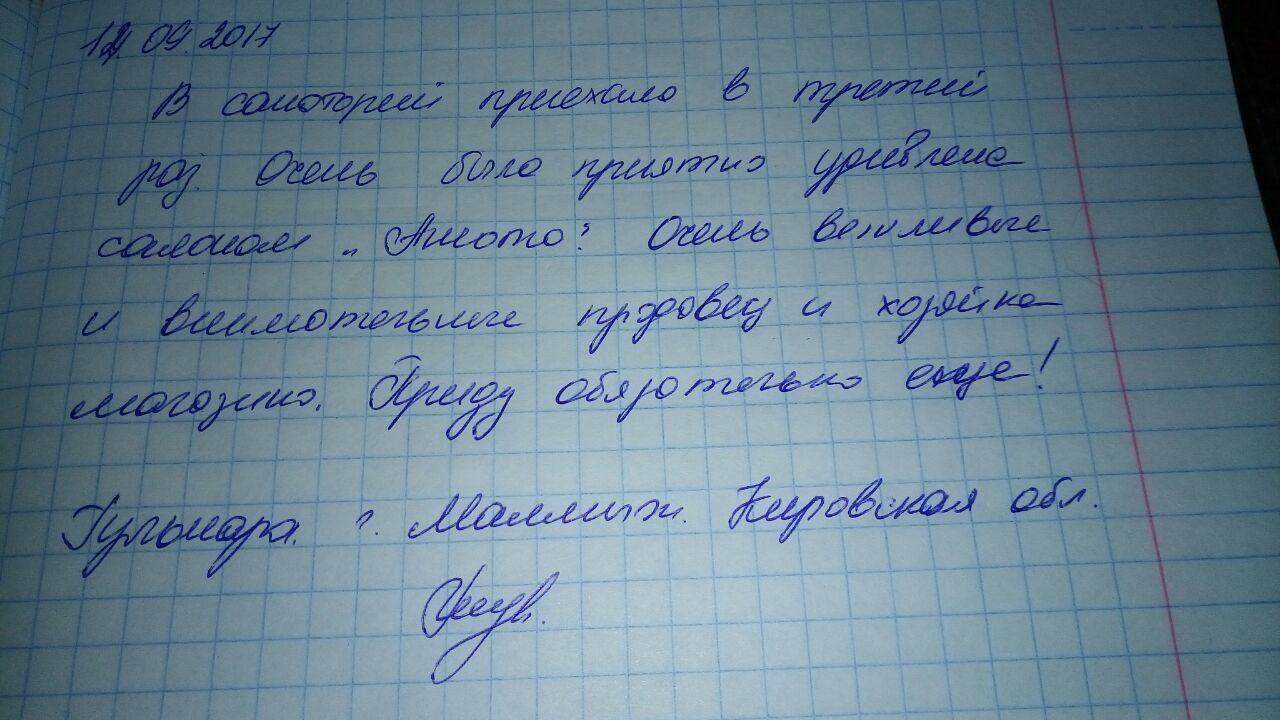 12.09.2017
В санаторий приехала в третий
раз. Очень была приятно удивлена
салоном „Агата". Очень вежливые
и внимательные продавец и хозяйка
магазина. Приду обязательно еще!
Гульнара. г. Малмыж. Кировская обл.